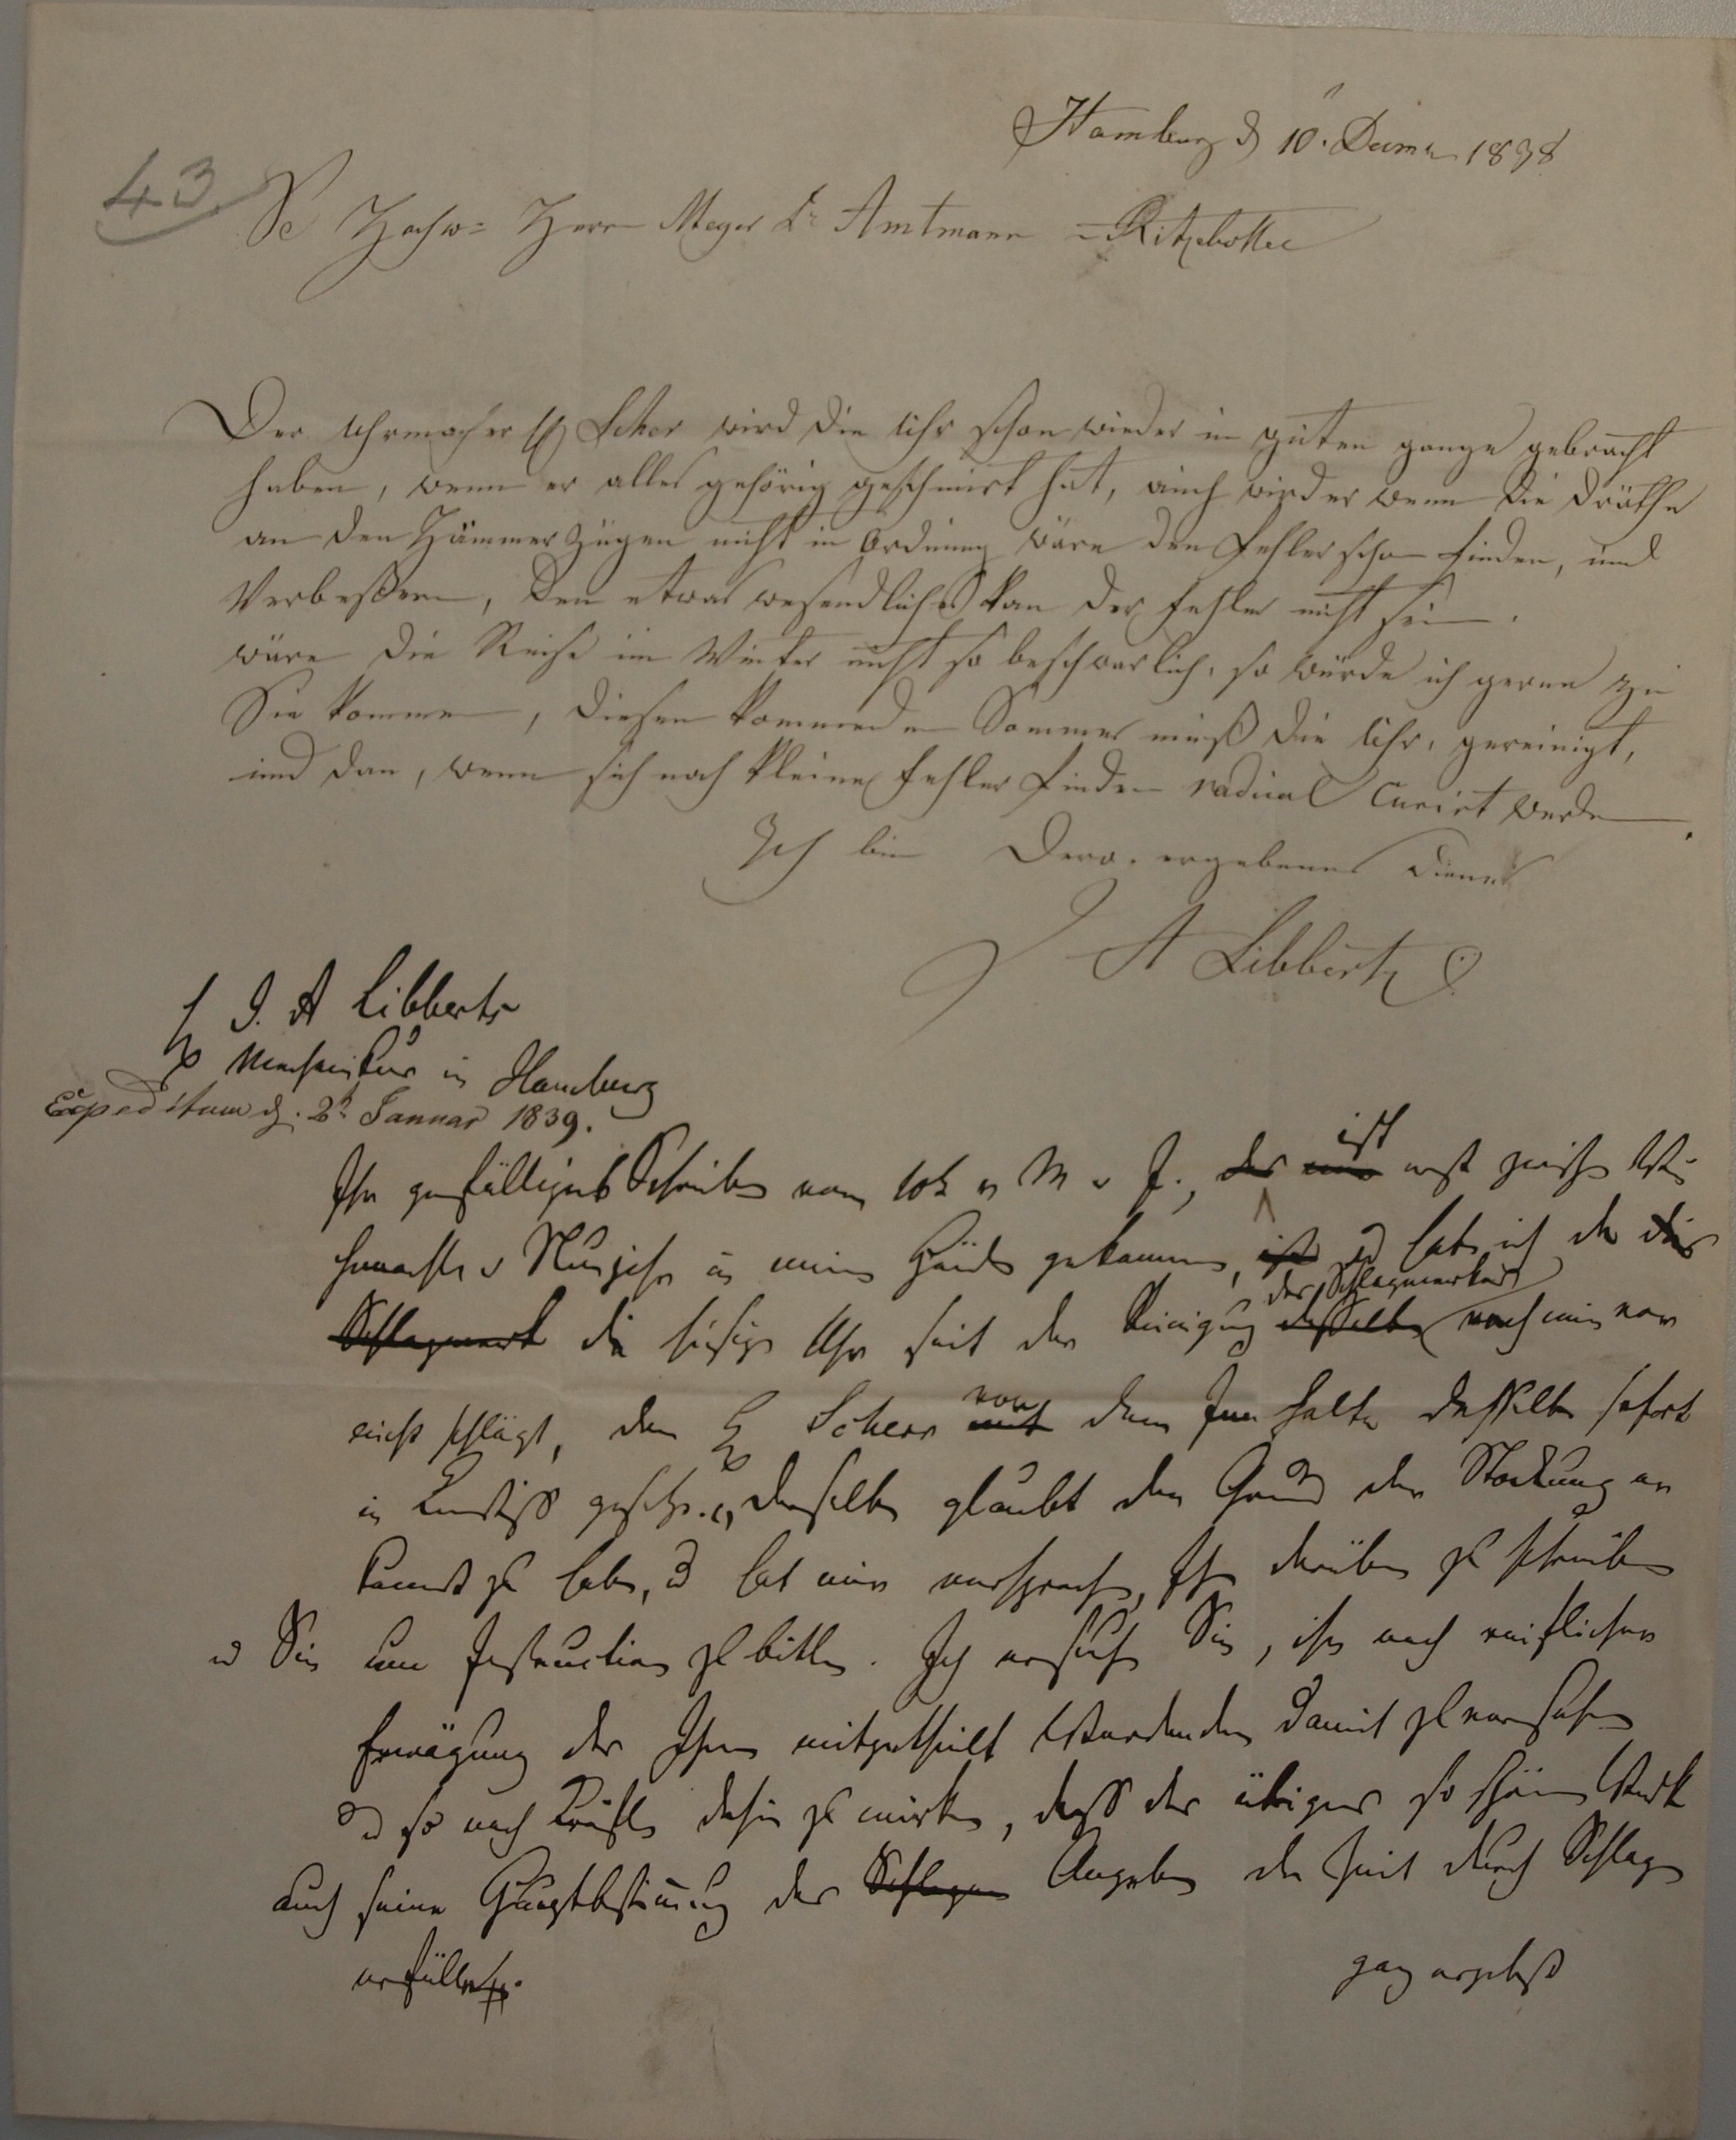 Hamburg d 10. Decmbr 1838
43
Se Hochw= Herr Meyer Dr Amtmann = Ritzebüttel
Der Uhrmacher H Scher wird die Uhr schon wieder in guten gange gebracht
haben, wenn er alles gehörig geschmirt hat, auch wird er wenn die Dräthe
an den Hammer Zügen nicht in Ordnung wäre den Fehler schon finden, und
Verbeßern, den etwas wesendliches kan der Fehler nicht sein.
wäre die Reise im Winter nicht so beschwerlich, so würde ich gerne zu
Sie kommen, diesen kommenden Sommer muß die Uhr, gereinigt,
und dan, wenn sich noch kleine Fehler finden radical Curirt werden.
Ich bin Dero. ergebener Diener
J A Libbertz
H J. A Libberts
Mechanikus in Hamburg
Expeditum d. 2t Januar 1839.
Ihr gefälliges Schreiben vom 10t v M v J., der ist erst zwischen Wei
hnachten u Neujahr in meine Hände gekommen, ist u habe ich da das
Schlagwerk die hiesige Uhr seit der Reinigung desselben des Schlagwerkes nach wie vor
nicht schlägt, den H Scherr mit von dem Inhalte desselben sofort
in Kenntniß gesetzt. derselbe glaubt den Grund der Stockung er
kannt zu haben, u hat mir versprochen, Ihnen darüber zu schreiben
u Sie um Instruction zu bitten. Ich ersuche Sie, ihn nach reiflicher
Erwägung des Ihnen mitgetheilt Werdenden damit zu versehen
u so nach Kräften dahin zu wirken, daß das übrigens so schöne Werk
auch seine Hauptbestimmung der Schlagen Angabe der Zeit durch Schlagen
erfülle.
ganz ergebenst